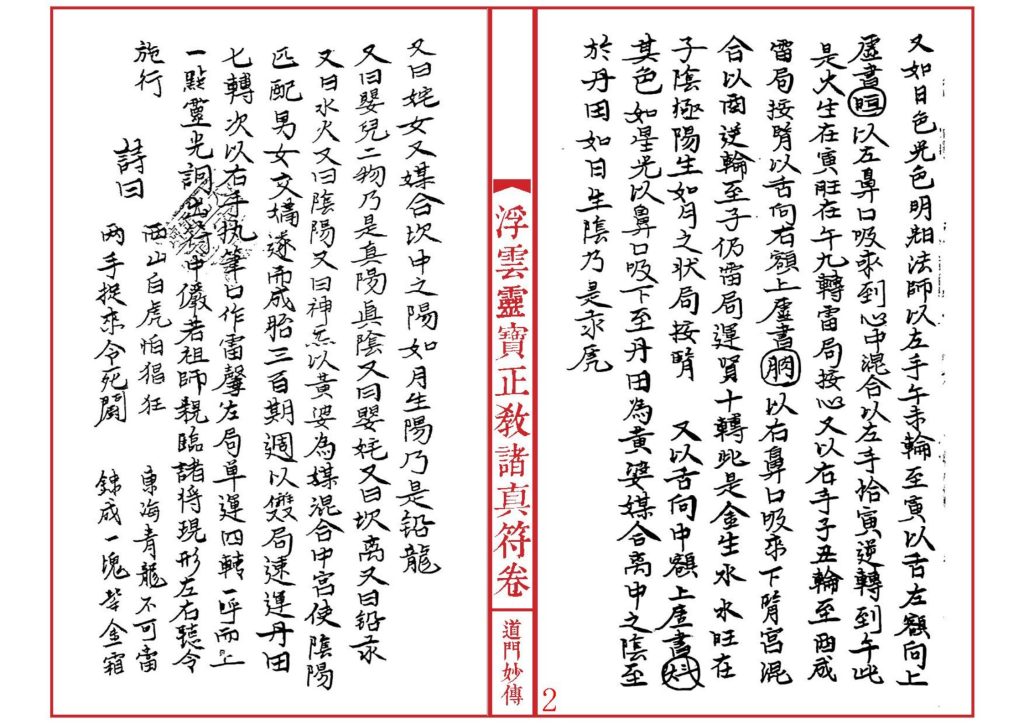 又如日色光色明朗法師以左手午未輪至寅以舌左額向上
虛書晅以左鼻口吸氣到心中混合以左手恰寅逆轉到午此
是火生在寅旺在午九轉雷局接心又以右手子丑輪至酉成
雷局接腎以舌向右額上虛書以右鼻口吸來下腎宮混
合以酉逆輪至子仍雷局運腎十轉此是金生水水旺在
子陰極陽生如月之狀局接腎 又以舌向中額上虛書
其色如星光以鼻口吸下至丹田為黃婆媒合离中之陰至
於丹田如日生陰乃是汞虎
浮雲靈寶正敎諸真符卷
道門妙傳
2
又曰姹女又媒合坎中之陽如月生陽乃是鉛龍
又曰嬰兒二物乃是真陽真陰又曰嬰姹又曰坎离又曰鉛汞
又曰水火又曰陰陽又曰神炁以黃婆為媒混合中宮使陰陽
匹配男女交媾遂而成胎三百期週以雙局速運丹田
七轉次以右手执筆口作雷聲左局单運四轉一呼而上
一點靈光詞出符中儼若祖師親臨諸將現形左右聽令
施行
詩曰
西山白虎怕猖狂 東海青龍不可當
两手捉來令死鬪 鍊成一塊紫金霜